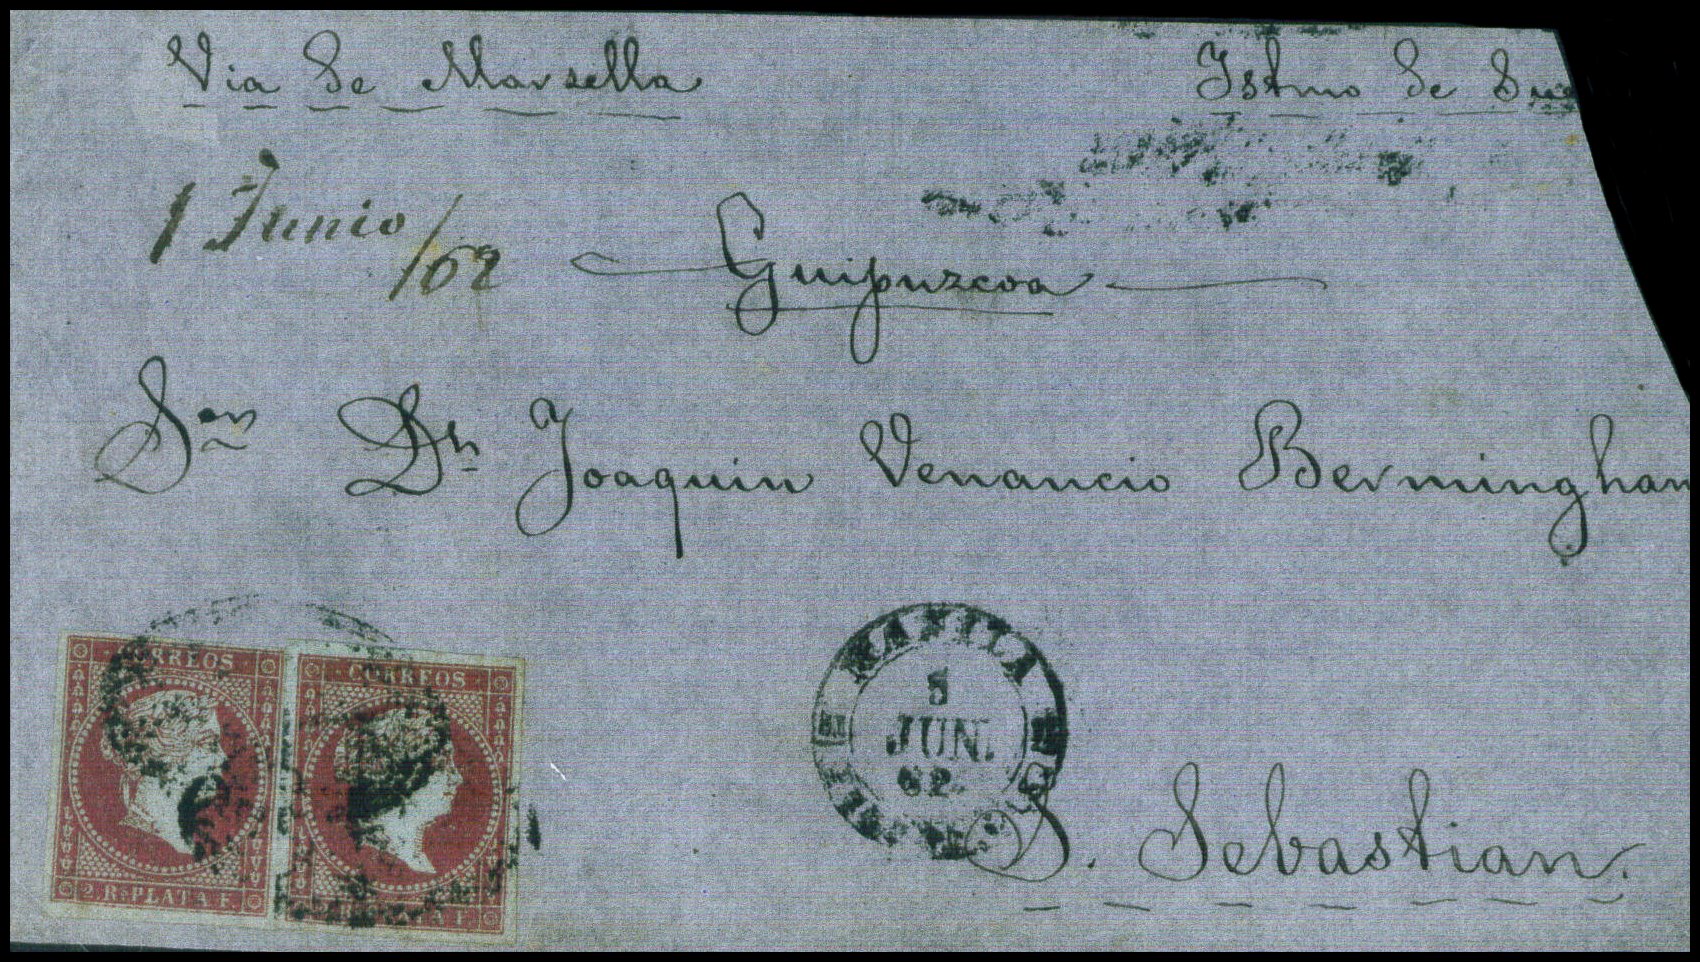 Via de Marsella
Istmo de Sue
1 Junio /62
Guipuzcoa
Sor Dn Joaquin Venancio Berminghan
CORREOS
2 Rs PLATA F.
CORREOS
PLATA F.
MANILA
5
JUN.
62.
S. Sebastian.